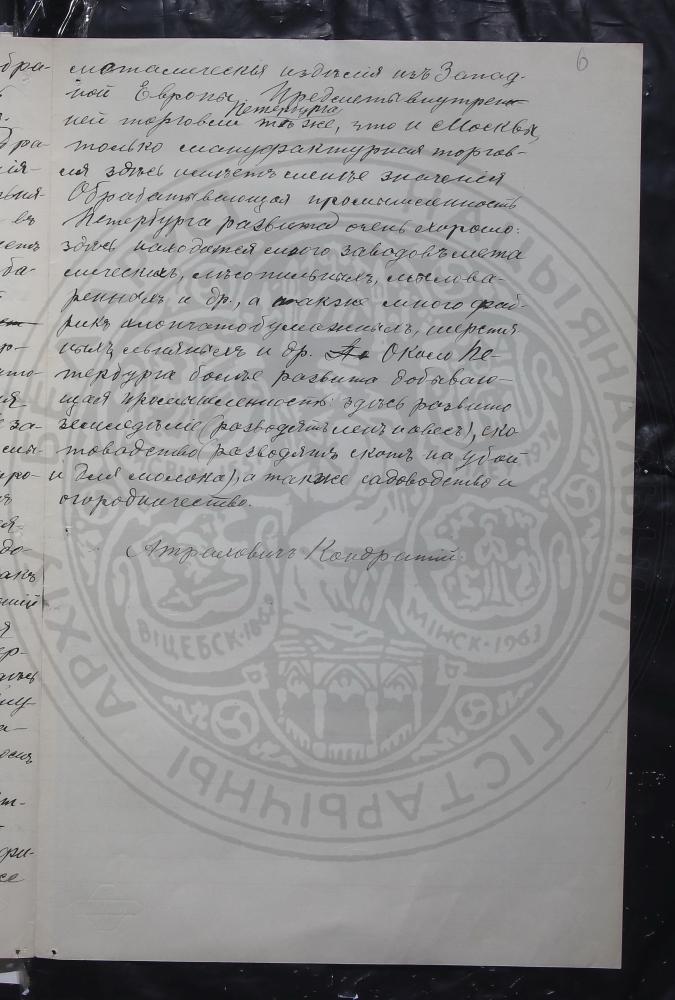 6
металическія издѣлія изъ Запад-
ной Европы. Предметы внутрен-
Петербурга
ней торговли тѣ же, что и Москвы,
только мануфактурная торгов-
ля здѣсь имѣетъ меньше значенія
Обрабатывающая промышленность
Петербурга развита очень хорошо:
здѣсь находится много заводовъ мета
лическихъ, лѣсопильныхъ, мылова-
ренныхъ и др., а также много фаб-
рикъ хлопчатобумажныхъ, шерстя
ныхъ льняныхъ и др. Около Пе-
тербурга болѣе развита добываю-
щая промышленность: здѣсь развито
земледѣліе (разводятъ ленъ и овесъ), ско
товодство (разводятъ скотъ на убой
и для молока), а также садоводство и
огородничество.
Атрахович Кондратій.
ВІЦЕБСК·1863
МІНСК·1963
НАЦЫЯНАЛЬНЫ
ГІСТАРЫЧНЫ
АРХІЎ